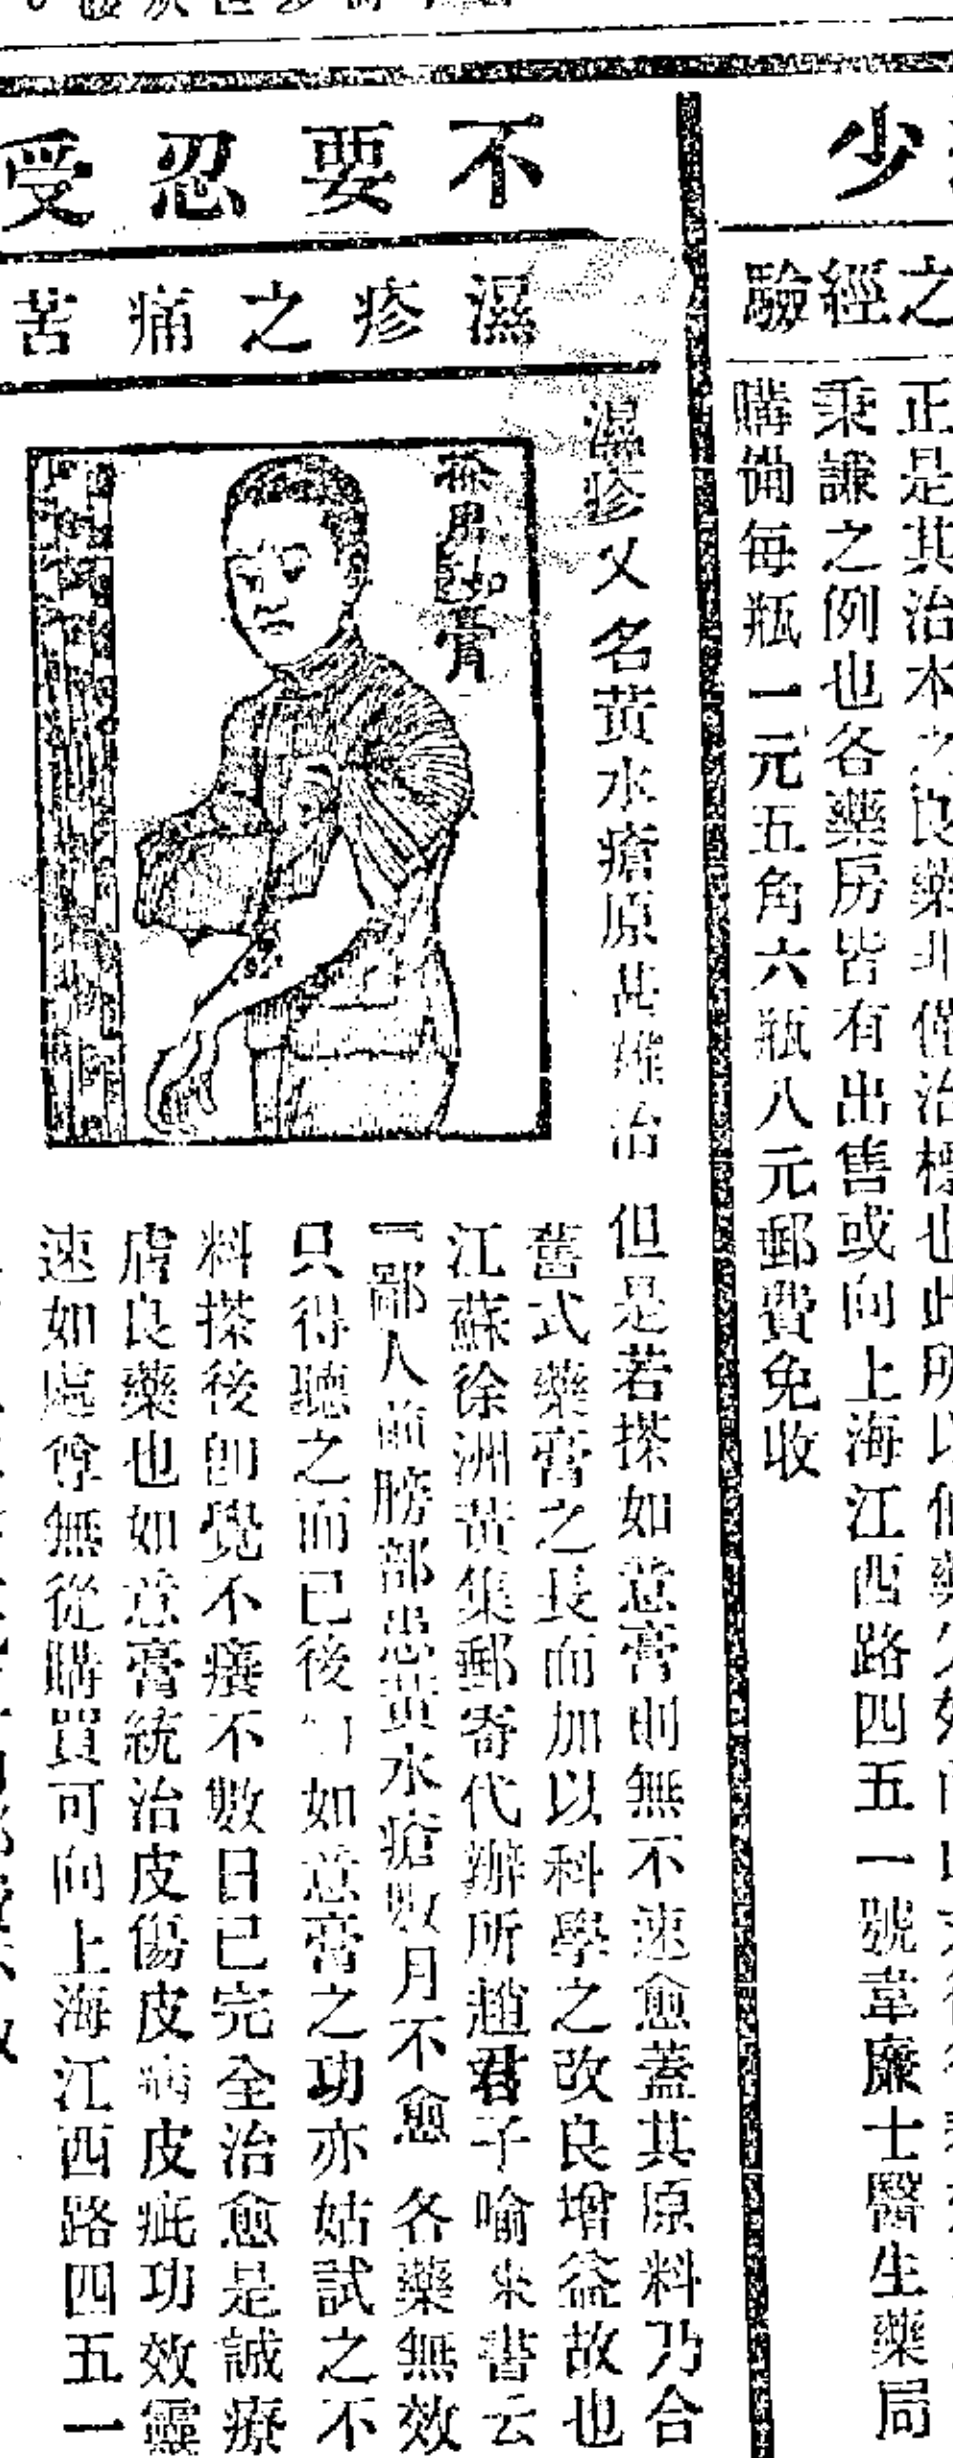 少
經驗
秉謙之例也各藥房皆有出售或向上海江西路四五一號韋廉士醫生藥局
購備每瓶一元五角六瓶八元郵費免收
不要忍受
濕疹之痛苦
濕疹又名黃水瘡原甚難治
但是若搽如意膏則無不速愈蓋其原料乃合
舊式藥膏之長而加以科學之改良增益故也
江蘇徐洲黃集郵寄代辦所趙君子喻來書云
鄙人前膀部患黃水瘡數月不愈 各藥無效
只得聽之而已後 如意膏之功亦姑試之不
料搽後卽覺不癢不數日已完全治愈是誠療
膚良藥也如意膏統治皮傷皮病皮疵功效靈
速如處尊無從購買可向上海江西路四五一